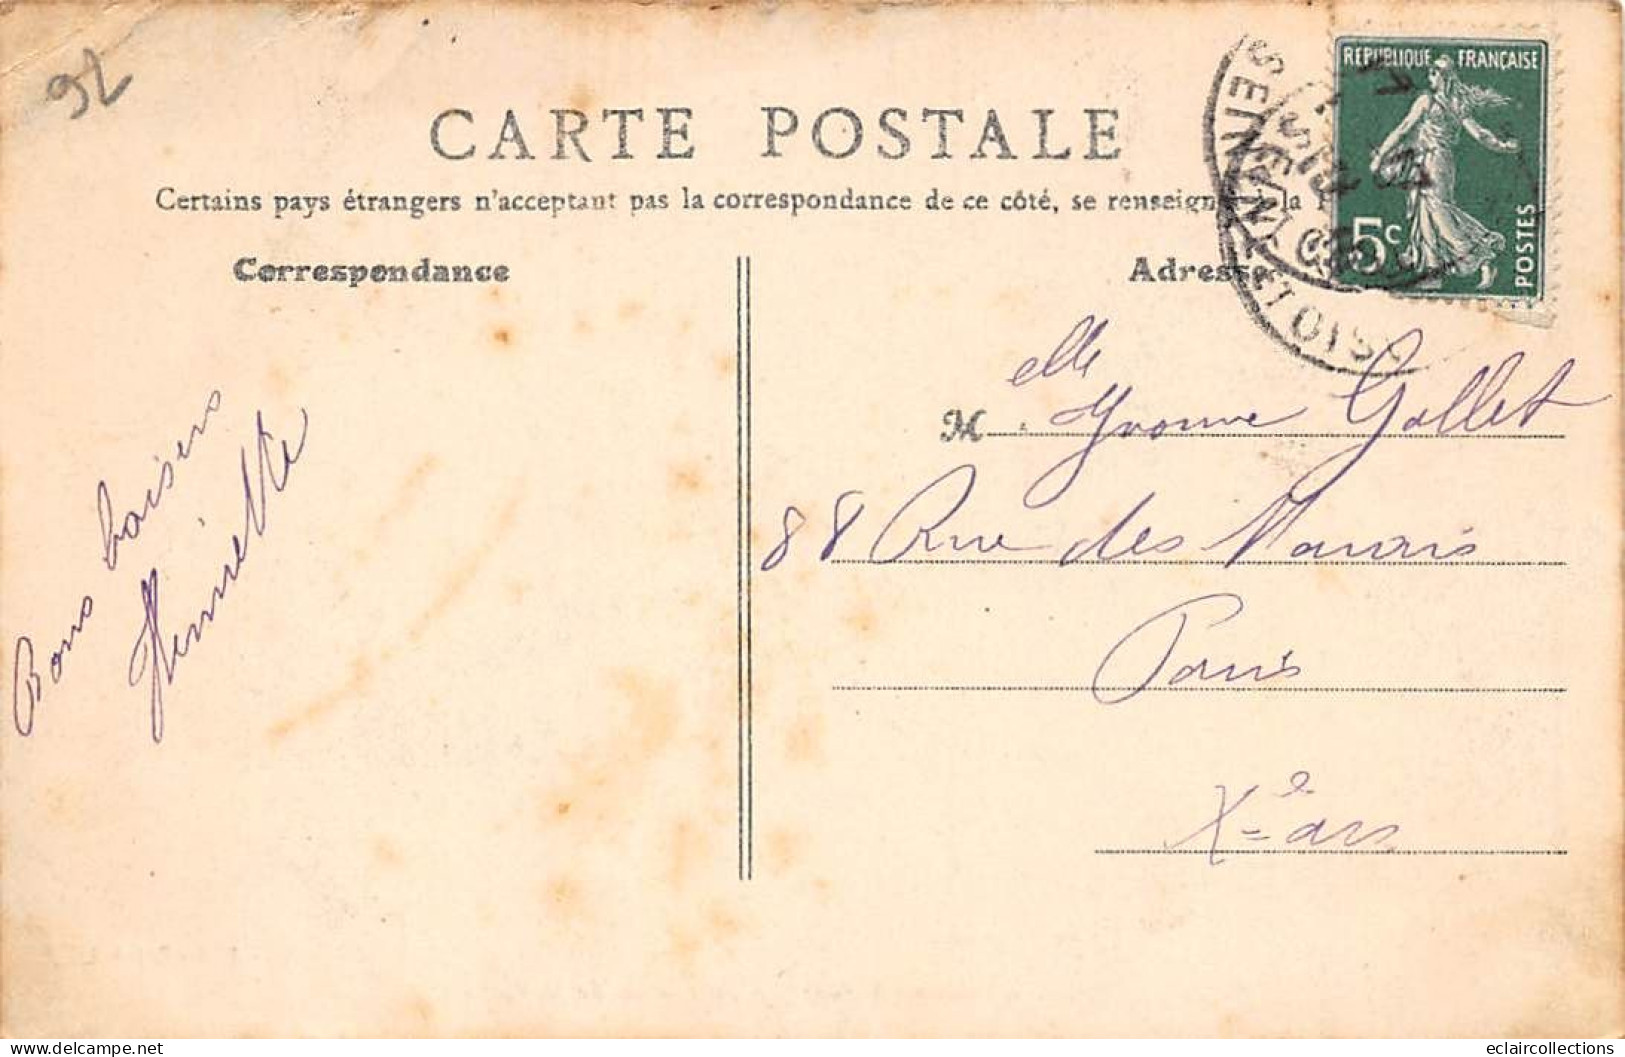 92
REPUBLIQUE FRANÇAISE
5c
POSTES
CARTE POSTALE
Certains pays étrangers n'acceptent pas la correspondance de ce côté, se renseign la
Correspondance
Adresse
SEINE ET OISE
Bons baisers
Henriette
M elle Yvonne Gallet
88 Rue des Marais
Paris
Xe ars
eclaircollections